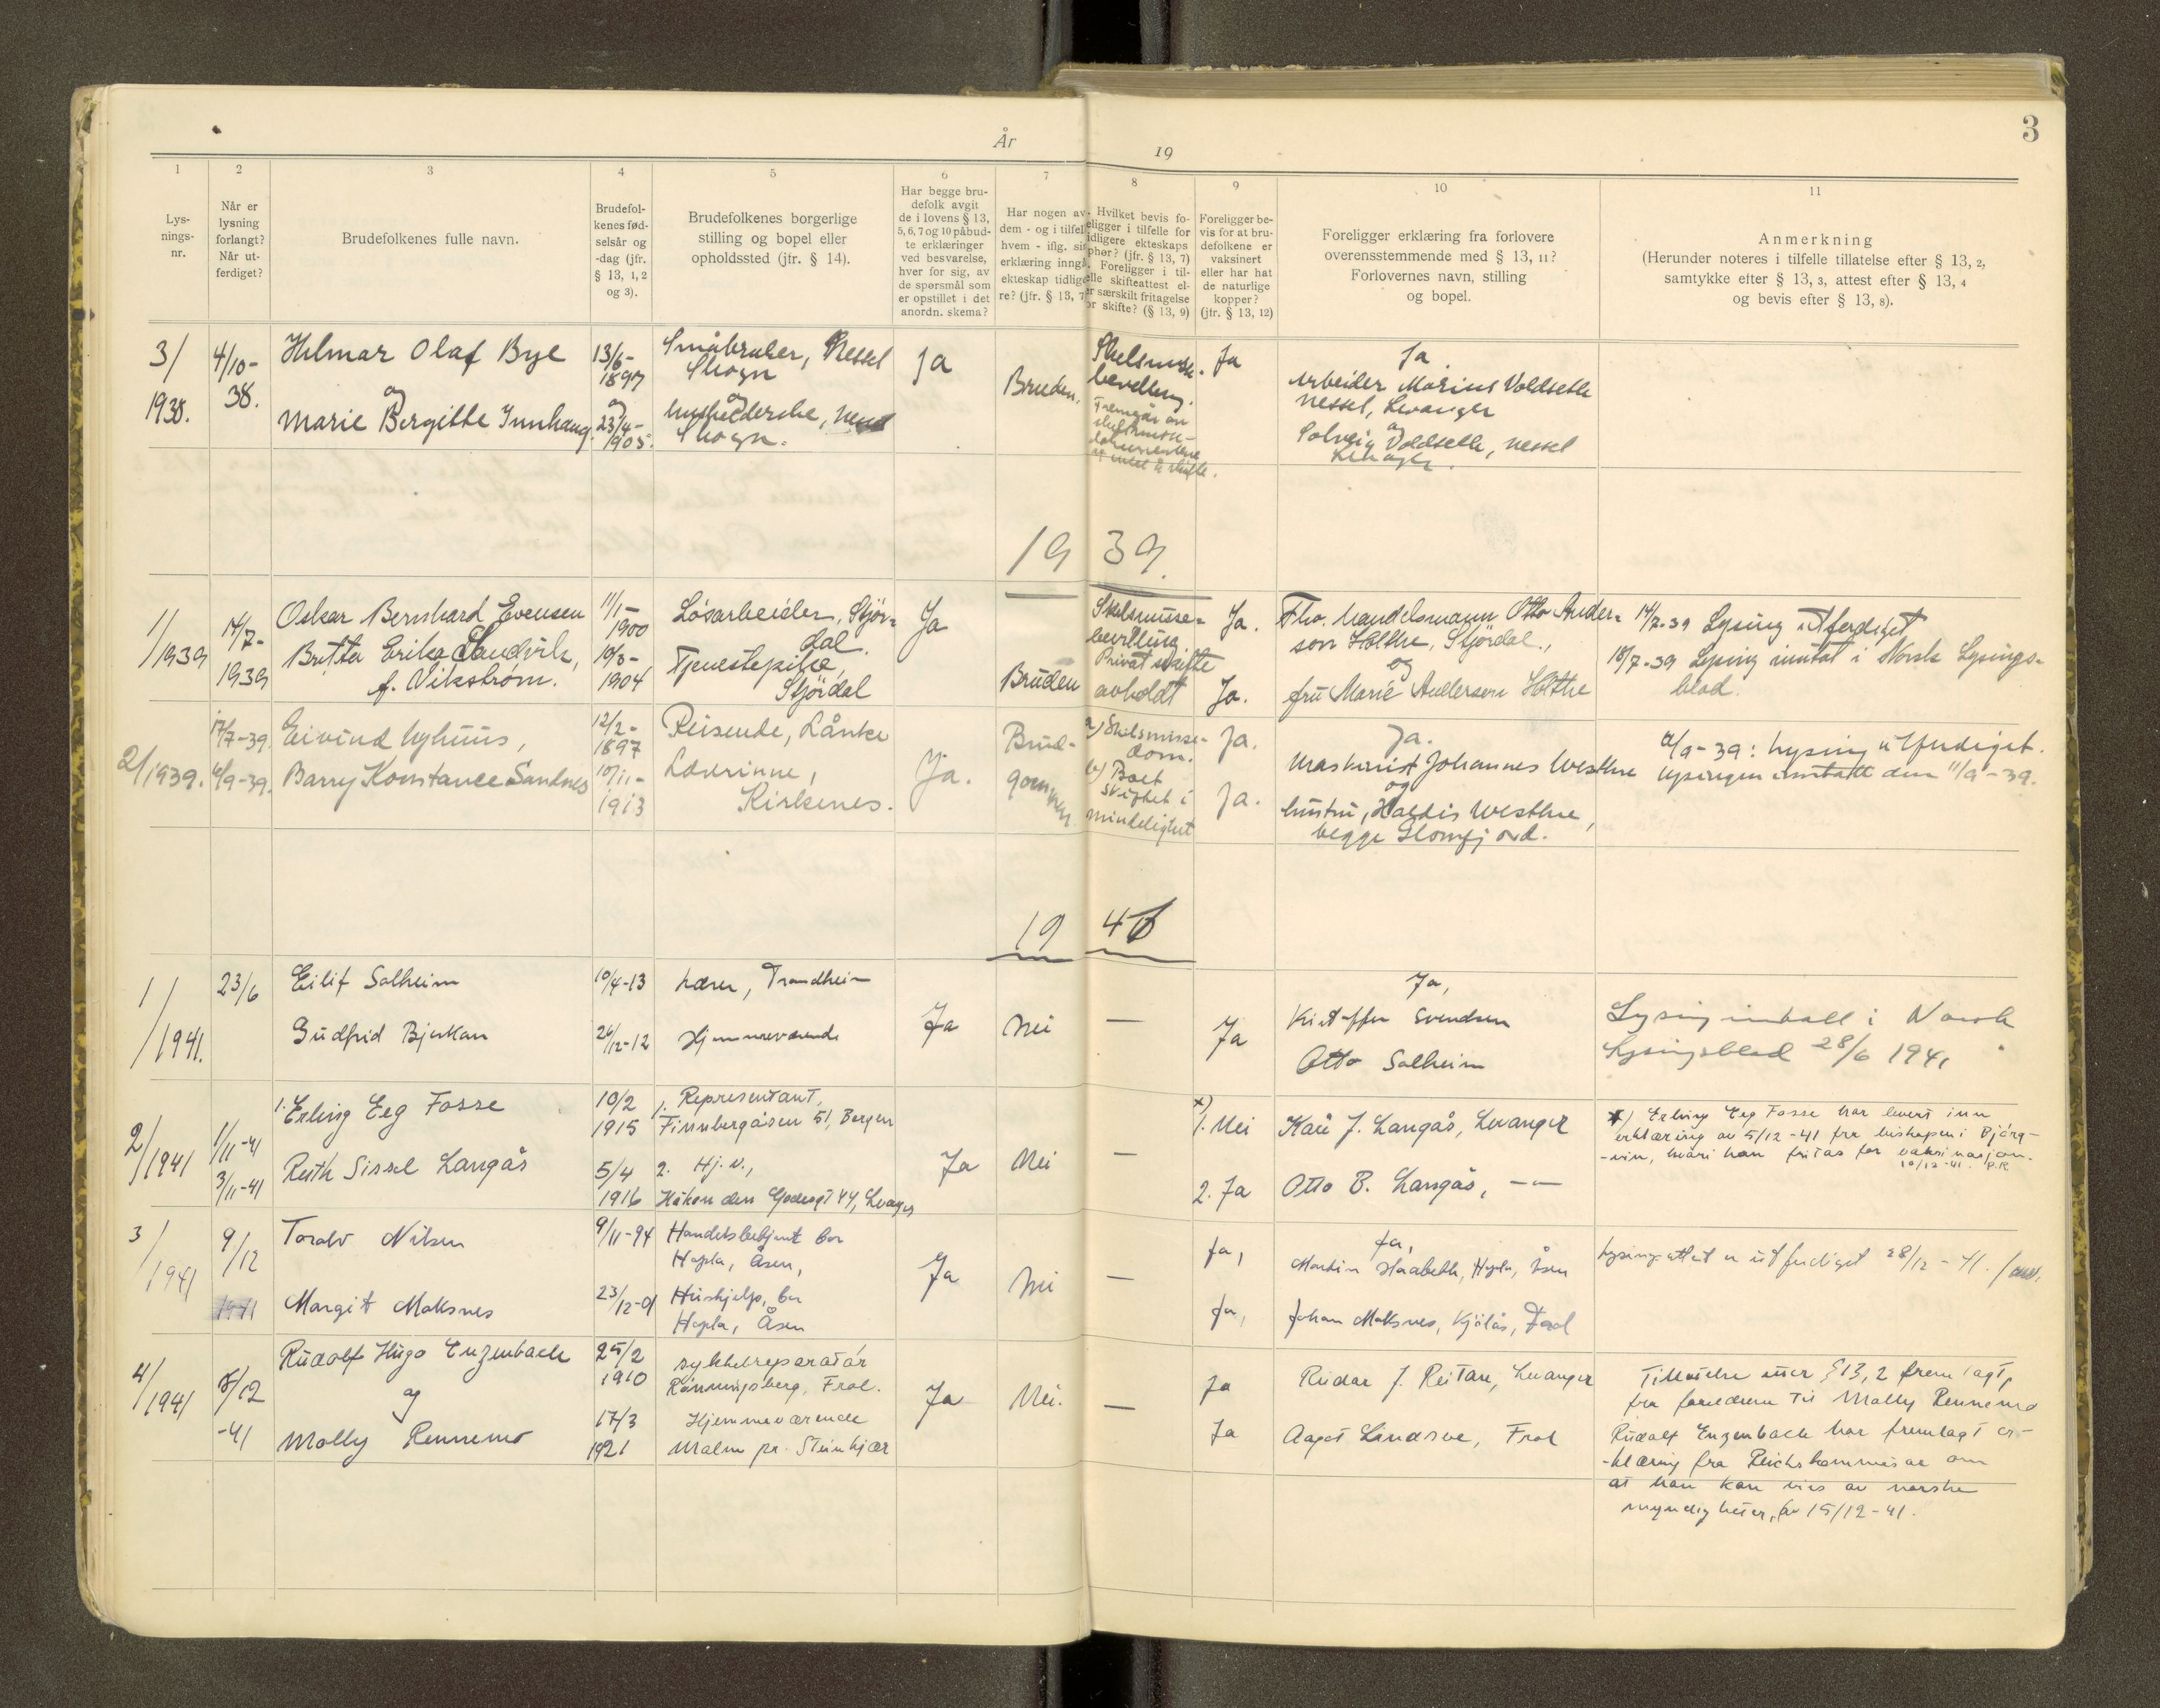 3
År
19
1
2
3
4
5
6
7
8
9
10
11
Lys-
nings-
nr.
Når er
lysning
forlangt?
Når ut-
ferdiget?
Brudefolkenes fulle navn.
Brudefol-
kenes fød-
selsår og
-dag (jfr.
§ 13, 1, 2
og 3).
Brudefolkenes borgerlige
stilling og bopel eller
opholdssted (jfr. § 14).
Har begge bru-
defolk avgit
de i lovens § 13,
5, 6, 7 og 10 påbud-
te erklæringer
ved besvarelse,
hver for sig, av
de spørsmål som
er opstillet i det
anordn. skema?
Har nogen av
dem - og i tilfel
hvem - iflg. sin
erklæring inngå
ekteskap tidlige
re? (jfr. § 13, 7
Hvilket bevis fo-
eligger i tilfelle for
idligere ekteskaps
phør? (jfr. § 13, 7)
Foreligger i til-
elle skifteattest el-
er særskilt fritagelse
or skifte? (§ 13, 9)
Foreligger be-
vis for at bru-
defolkene er
vaksinert
eller har hat
de naturlige
kopper?
(jfr. § 13, 12)
Foreligger erklæring fra forlovere
overensstemmende med § 13, 11?
Forlovernes navn, stilling
og bopel.
Anmerkning
(Herunder noteres i tilfelle tillatelse efter § 13, 2,
samtykke efter § 13, 3, attest efter § 13, 4
og bevis efter § 13, 8).
3/
1938.
4/10-
38.
Hilmar Olaf Bye
og
Marie Bergitte Innhaug.
13/6-
1897
og
23/4-
1905.
Småbruker, Nessel
Skogn
og
husholderske,
Skogn.
Ja
Bruden.
Skilsmisse-
bevilling.
Fremgår av
skilsmisse-
dokumentene
Ja
Ja
Arbeider Marius Voldseth
Nessel, Levanger
og
Solveig Voldseth, Nessel
Levanger.
1939.
1/1939
14/7-
1939
Oskar Bernhard Evensen
Britta Erika Sandvik,
f. Vikstrøm.
11/1-
1900
10/3-
1904
Løsarbeider, Stjør-
dal.
Tjenestepike,
Stjördal
Ja
Bruden
Skilsmisse-
bevilling
Privat skifte
avholdt
Ja.
Ja.
Fho. handelsmann Otto Ander-
son Holthe, Stjördal.,
og
fru Marie Anderson Holthe
14/7-39 Lysing utferdiget
18/7-39 Lysing inntat i Norsk Lysings-
blad.
2/1939.
17/7-39.
6/9-39.
Eivind Nyhuus,
Barry Konstance Sandnes
12/2-
1897
10/11-
1913
Reisende, Lånke
Lærerinne,
Kirkenes.
Ja.
Brud-
gommen
a) Skilsmisse-
dom.
b) Boet
skiftet i
mindelighet
Ja.
Ja.
Ja.
Maskinist Johannes Westhre
og
hustru, Haldis Westhre,
begge Glomfjord.
6/9-39: Lysing utferdiget.
Lysingen inntatt den 11/9-39.
19 41
1/1941.
23/6
Eilif Solheim
Gudfrid Bjerkan
10/4-13
26/12-12
Lærer, Trondheim
Hjemmeværende
Ja
Nei
—
Ja
Ja,
Kristoffer Svendsen
Otto Solheim
Lysing inntatt i Norsk
Lysingsblad 28/6 1941
2/1941
1/11-41
3/11-41
1. Erling Eeg Fosse
Ruth Sissel Langås
10/2
1915
5/4
1916
1. Representant,
Finnbergåsen 51, Bergen
2. Hj. v.,
Håkon den Godesgt 44, Levanger
Ja
Nei
—
x)
1. Nei
2. Ja
Kåre J. Langås, Levanger
Otto B. Langås, — —
x) Erling Eeg Fosse har levert inn
erklæring av 5/12-41 fra biskopen i Bjørg-
-vin, hvori han fritas for vaksinasjon.
10/12-41. P.R.
3/1941
9/12
1941
Toralv Nilsen
Margit Moksnes
9/11-94
23/12-01
Handelsbetjent bor
Hopla, Åsen,
Hushjelp, bor
Hopla, Åsen
Ja
Nei
—
Ja,
Ja,
Ja,
Martin Haabeth, Hopla, Åsen
Johan Moksnes, Kjölås, Frol
Lysingsattest er utferdiget 28/12-41.
4/1941
8/12
-41
Rudolf Hugo Enzenbach
og
Molly Rennemo
25/2
1910
17/3
1921
sykkelreparatör
Rönningsberg, Frol.
Hjemmeværende
Malm pr. Steinkjær
Ja
Nei.
—
Ja
Ja
Reidar J. Reitan, Levanger
Aagot Lindsve, Frol
Tillatelse etter § 13, 2 fremlagt,
fra foreldrene til Molly Rennemo
Rudolf Enzenbach har fremlagt er-
-klæring fra Reichskommisar om
at han kan vies av norske
myndigheter, av 15/12-41.